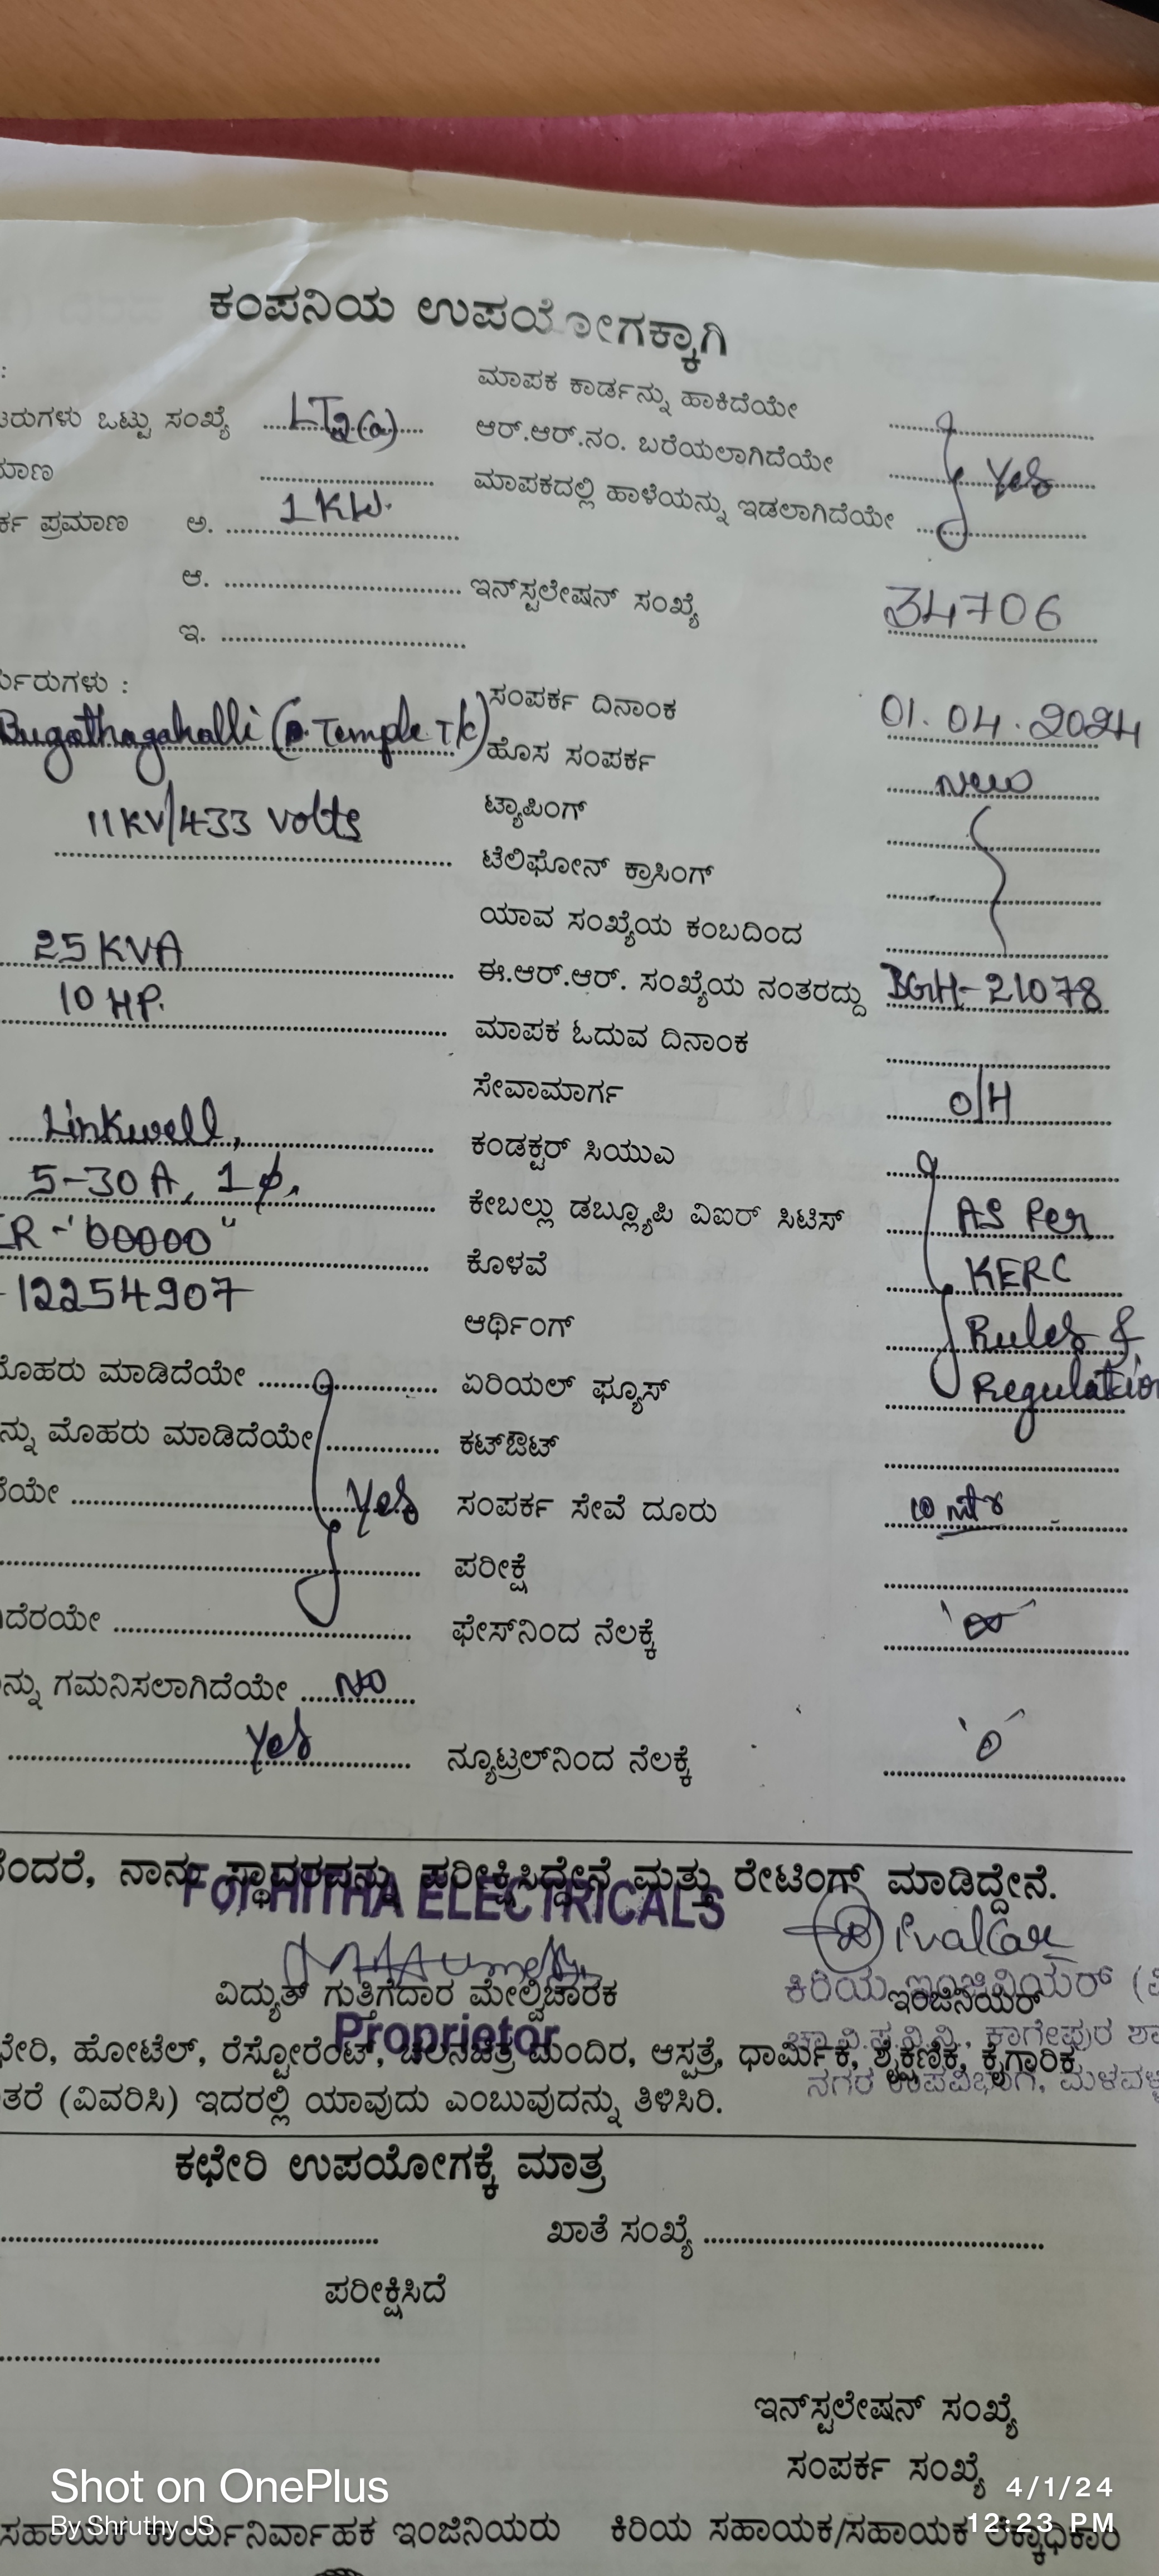 ಕಂಪನಿಯ ಉಪಯೋಗಕ್ಕಾಗಿ
ಮಾಪಕ ಕಾರ್ಡನ್ನು ಹಾಕಿದೆಯೇ
ಒಟ್ಟು ಸಂಖ್ಯೆ LT2(a) ಆರ್.ಆರ್.ನಂ. ಬರೆಯಲಾಗಿದೆಯೇ Yes
ಮಾಪಕದಲ್ಲಿ ಹಾಳೆಯನ್ನು ಇಡಲಾಗಿದೆಯೇ
ಪ್ರಮಾಣ ಅ. 1 KW.
ಆ. ಇನ್‌ಸ್ಟಲೇಷನ್ ಸಂಖ್ಯೆ 34706
ಇ.
ಸಂಪರ್ಕ ದಿನಾಂಕ 01.04.2024
Bugathagahalli (Temple T/c) ಹೊಸ ಸಂಪರ್ಕ New
11KV/433 Volts ಟ್ಯಾಪಿಂಗ್
ಟೆಲಿಫೋನ್ ಕ್ರಾಸಿಂಗ್
ಯಾವ ಸಂಖ್ಯೆಯ ಕಂಬದಿಂದ
25 KVA ಈ.ಆರ್.ಆರ್. ಸಂಖ್ಯೆಯ ನಂತರದ್ದು BGH-21078
10 HP. ಮಾಪಕ ಓದುವ ದಿನಾಂಕ
ಸೇವಾಮಾರ್ಗ O/H
Linkwell, ಕಂಡಕ್ಟರ್ ಸಿಯುಎ
5-30 A, 1φ, ಕೇಬಲ್ಲು ಡಬ್ಲ್ಯೂಪಿ ವಿಐರ್ ಸಿಟಿಸ್ AS Per
R-"00000" ಕೊಳವೆ KERC
12254907 ಆರ್ಥಿಂಗ್ Rules &
ಮಾಡಿದೆಯೇ ಏರಿಯಲ್ ಫ್ಯೂಸ್ Regulation
ಮೊಹರು ಮಾಡಿದೆಯೇ ಕಟ್‌ಔಟ್
Yes ಸಂಪರ್ಕ ಸೇವೆ ದೂರು 10 mtr
ಪರೀಕ್ಷೆ
ಫೇಸ್‌ನಿಂದ ನೆಲಕ್ಕೆ ∞
ಗಮನಿಸಲಾಗಿದೆಯೇ NO
Yes ನ್ಯೂಟ್ರಲ್‌ನಿಂದ ನೆಲಕ್ಕೆ '0'
ನಾನು ಸ್ಥಾವರವನ್ನು ಪರೀಕ್ಷಿಸಿದ್ದೇನೆ ಮತ್ತು ರೇಟಿಂಗ್ ಮಾಡಿದ್ದೇನೆ.
For HITHA ELECTRICALS
ವಿದ್ಯುತ್ ಗುತ್ತಿಗೆದಾರ ಮೇಲ್ವಿಚಾರಕ ಇಂಜಿನಿಯರ್
ಕಿರಿಯ ಇಂಜಿನಿಯರ್
Proprietor
ಹೋಟೆಲ್, ರೆಸ್ಟೋರೆಂಟ್, ಚಲನಚಿತ್ರ ಮಂದಿರ, ಆಸ್ಪತ್ರೆ, ಧಾರ್ಮಿಕ, ಶೈಕ್ಷಣಿಕ, ಕೈಗಾರಿಕ
(ವಿವರಿಸಿ) ಇದರಲ್ಲಿ ಯಾವುದು ಎಂಬುವುದನ್ನು ತಿಳಿಸಿರಿ.
ಕಛೇರಿ ಉಪಯೋಗಕ್ಕೆ ಮಾತ್ರ
ಖಾತೆ ಸಂಖ್ಯೆ
ಪರೀಕ್ಷಿಸಿದೆ
ಇನ್‌ಸ್ಟಲೇಷನ್ ಸಂಖ್ಯೆ
ಸಂಪರ್ಕ ಸಂಖ್ಯೆ
Shot on OnePlus 4/1/24
By Shruthy JS 12:23 PM
ಸಹಾಯಕ ಕಾರ್ಯನಿರ್ವಾಹಕ ಇಂಜಿನಿಯರು ಕಿರಿಯ ಸಹಾಯಕ/ಸಹಾಯಕ ಲೆಕ್ಕಾಧಿಕಾರಿ